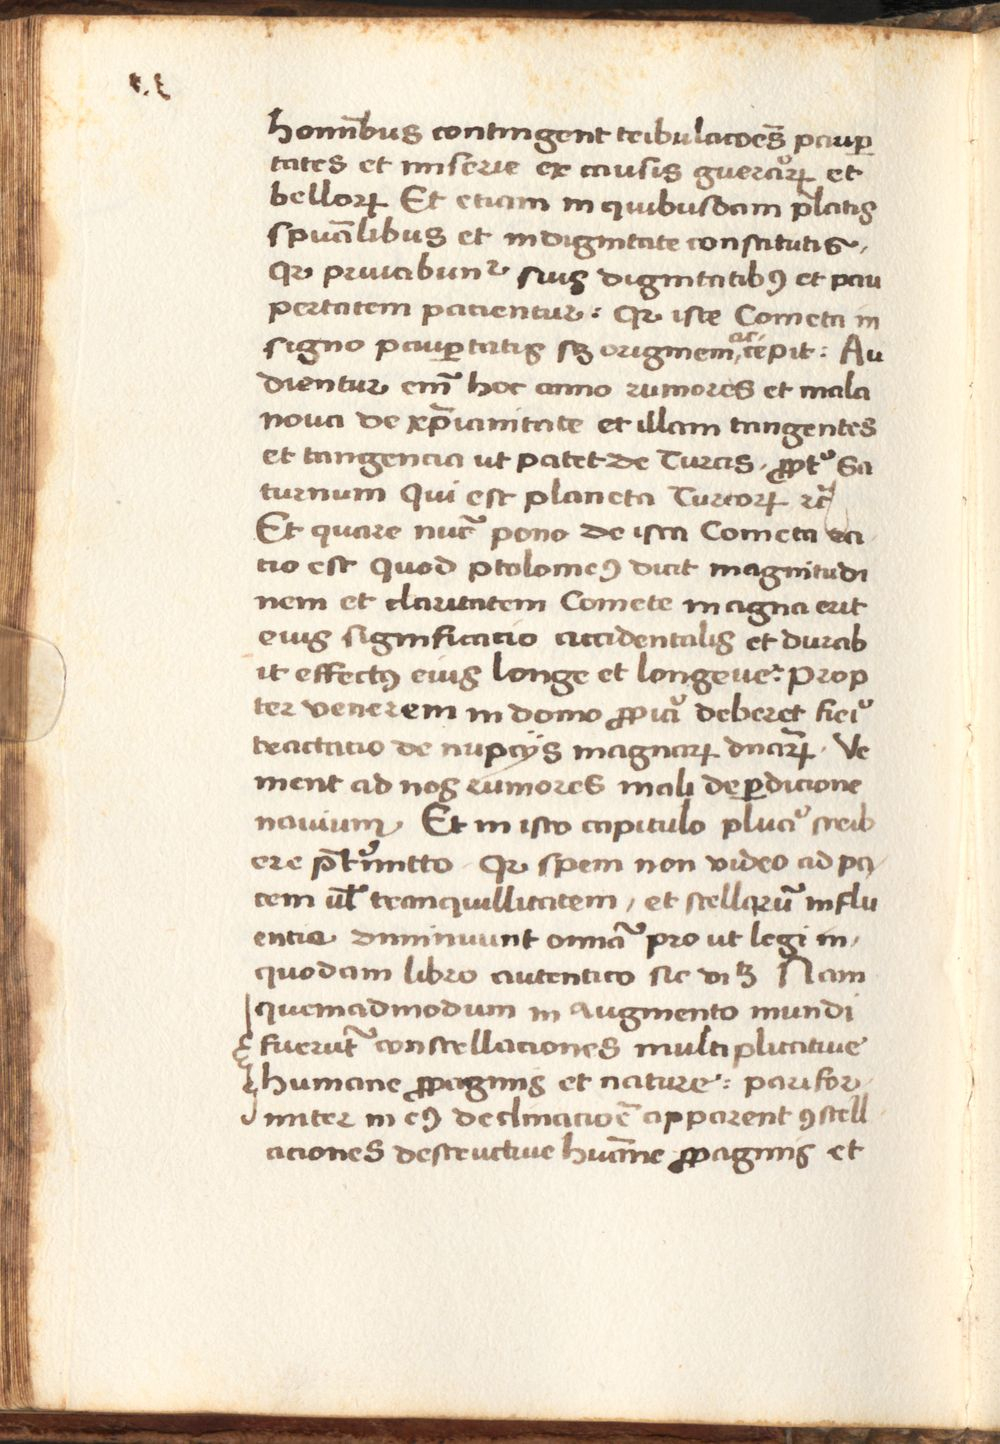 homībus contingent tribulacōēs paup
tates et miserie ex causis guerarꝝ et
bellorꝝ Et etiam in quibusdam p̄latis
spūālibus et in dignitate constitutis,
Qꝛ privabunt᷑ suis dignitatibꝯ et pau
pertatem pacientur: Qꝛ iste Cometa in
signo paup̱tatis sꝫ originem accēpit: Au
dientur em̄ hoc anno rumores et mala
nova de xp̄ianitate et illam tangentes
et tangencia ut patet de Turcis, ꝓpt᷒ Sa
turnum Qui est planeta Turcorꝝ ꝛc̄
Et quare nūc pono de ista Cometa ra
tio est Quod ptolomeꝯ dicit magnitudi
nem et claritatem Comete magna erit
eius significatio accidentalis et durab
it effectꝯ eius longe et longeve: Prop
ter venerem in domo ꝓpia deberet fieri
tractatio de nupcijs magnarꝝ dn̄arꝝ. Ve
nient ad nos rumores mali de ꝑdicione
navium, Et in isto capitulo plura scrib
ere p̄t᷒mitto Qꝛ spem non video ad pa
cem ul̄ tranquillitatem, et stellarū influ
entia diminuunt omīa pro ut legi in,
quodam libro autentico sic diꝫ Nam
quemadmodum in augmento mundi
fuerūt constellaciones multiplicative
humane ꝓpaginis et nature: parifor
miter in eꝯ declinacioē apparent ꝯstell
aciones destructive hūāne ꝓpaginis et